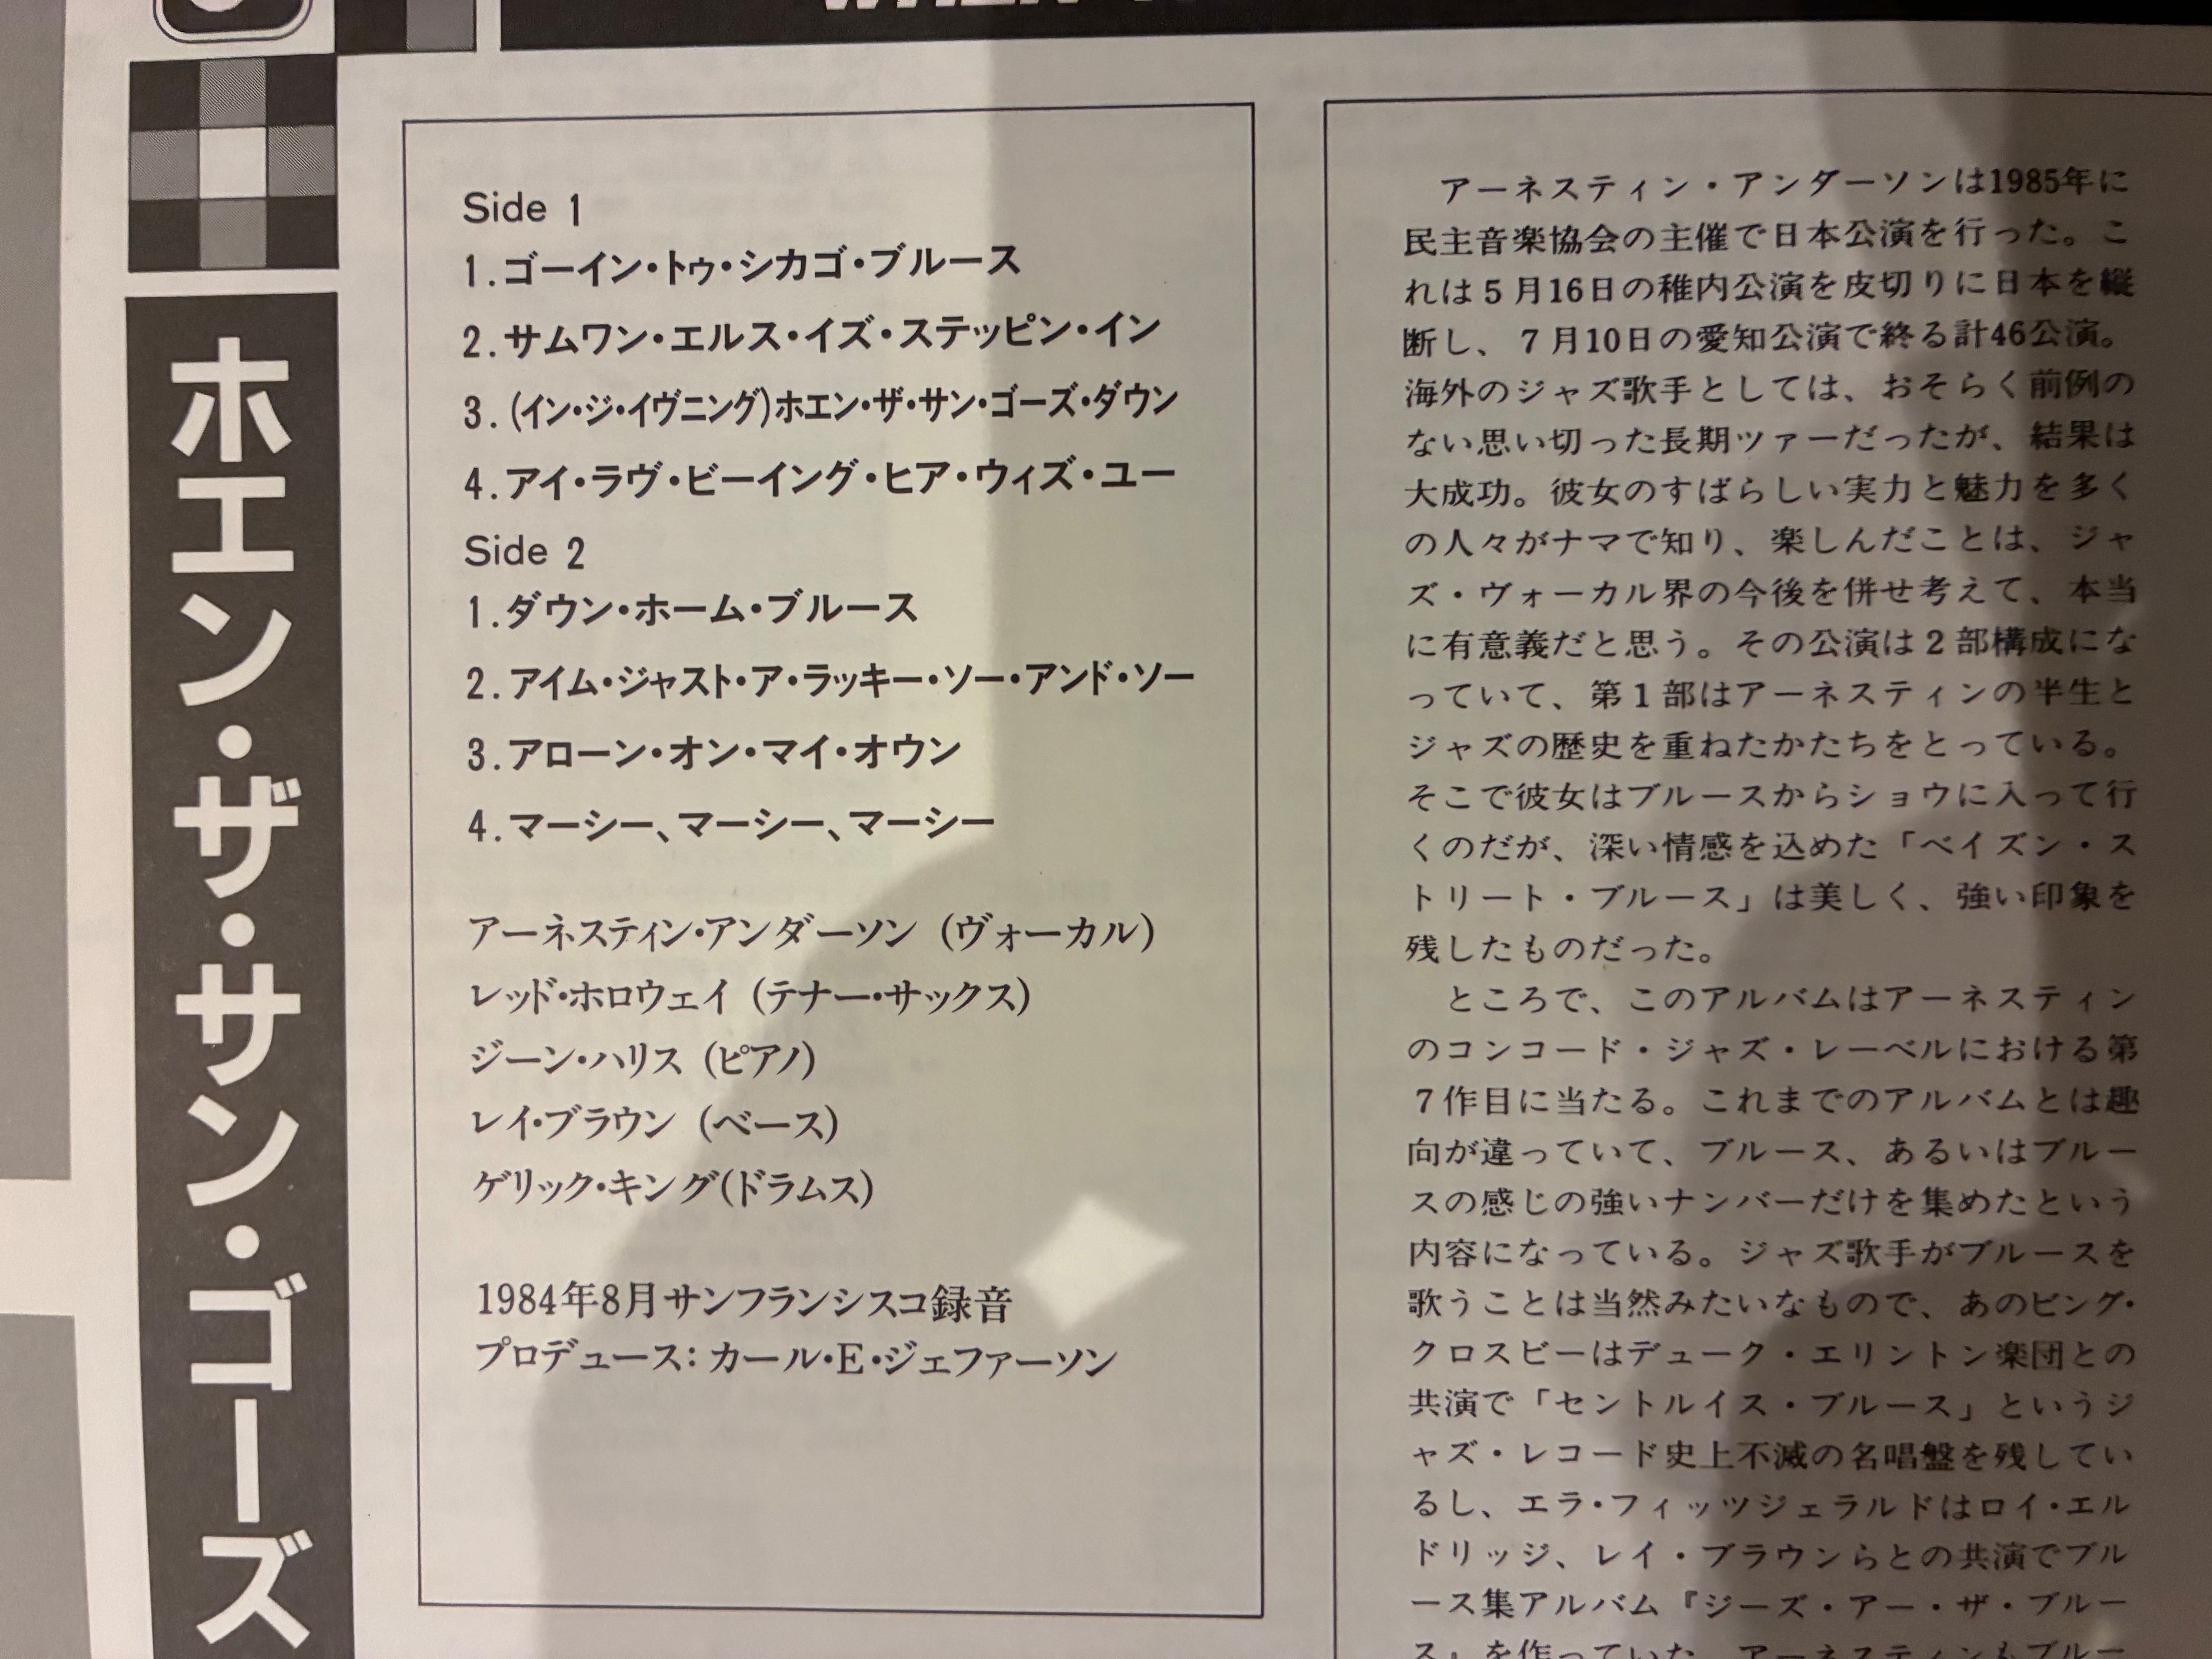 ホエン・ザ・サン・ゴーズ
Side 1
1.ゴーイン・トゥ・シカゴ・ブルース
2.サムワン・エルス・イズ・ステッピン・イン
3.(イン・ジ・イヴニング)ホエン・ザ・サン・ゴーズ・ダウン
4.アイ・ラヴ・ビーイング・ヒア・ウィズ・ユー
Side 2
1.ダウン・ホーム・ブルース
2.アイム・ジャスト・ア・ラッキー・ソー・アンド・ソー
3.アローン・オン・マイ・オウン
4.マーシー、マーシー、マーシー
アーネスティン・アンダーソン (ヴォーカル)
レッド・ホロウェイ (テナー・サックス)
ジーン・ハリス (ピアノ)
レイ・ブラウン (ベース)
ゲリック・キング(ドラムス)
1984年8月サンフランシスコ録音
プロデュース: カール・E・ジェファーソン
アーネスティン・アンダーソンは1985年に
民主音楽協会の主催で日本公演を行った。こ
れは5月16日の稚内公演を皮切りに日本を縦
断し、7月10日の愛知公演で終る計46公演。
海外のジャズ歌手としては、おそらく前例の
ない思い切った長期ツァーだったが、結果は
大成功。彼女のすばらしい実力と魅力を多く
の人々がナマで知り、楽しんだことは、ジャ
ズ・ヴォーカル界の今後を併せ考えて、本当
に有意義だと思う。その公演は2部構成にな
っていて、第1部はアーネスティンの半生と
ジャズの歴史を重ねたかたちをとっている。
そこで彼女はブルースからショウに入って行
くのだが、深い情感を込めた「ベイズン・ス
トリート・ブルース」は美しく、強い印象を
残したものだった。
ところで、このアルバムはアーネスティン
のコンコード・ジャズ・レーベルにおける第
7作目に当たる。これまでのアルバムとは趣
向が違っていて、ブルース、あるいはブルー
スの感じの強いナンバーだけを集めたという
内容になっている。ジャズ歌手がブルースを
歌うことは当然みたいなもので、あのビング・
クロスビーはデューク・エリントン楽団との
共演で「セントルイス・ブルース」というジ
ャズ・レコード史上不滅の名唱盤を残してい
るし、エラ・フィッツジェラルドはロイ・エル
ドリッジ、レイ・ブラウンらとの共演でブル
ース集アルバム『ジーズ・アー・ザ・ブルー
ス』を作っていた。アーネスティンもブルー